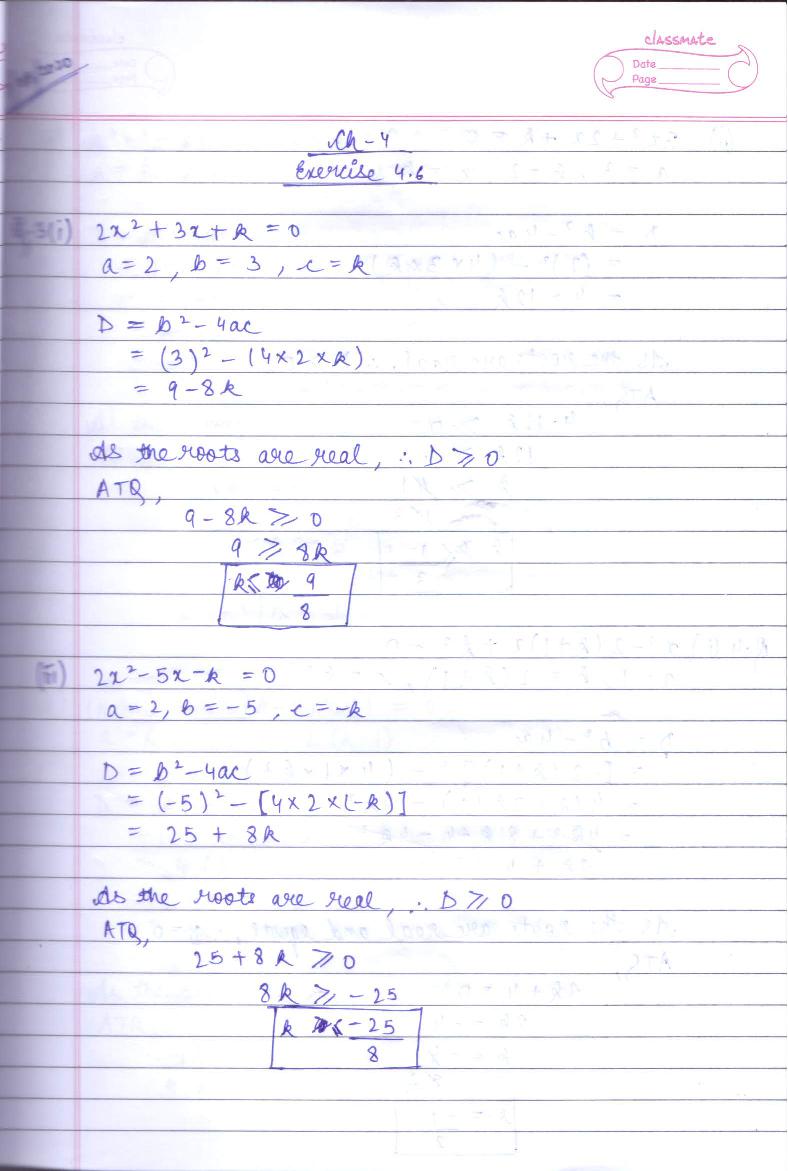 classmate
Date
Page
Ch - 4
Exercise 4.6
3(i) 2x² + 3x + k = 0
a = 2, b = 3, c = k
D = b² - 4ac
= (3)² - (4 x 2 x k)
= 9 - 8k
As the roots are real, ∴ D ⩾ 0
ATQ,
9 - 8k ⩾ 0
9 ⩾ 8k
k ⩽ 9/8
2x² - 5x - k = 0
a = 2, b = -5, c = -k
D = b² - 4ac
= (-5)² - [4 x 2 x (-k)]
= 25 + 8k
As the roots are real, ∴ D ⩾ 0
ATQ,
25 + 8k ⩾ 0
8k ⩾ -25
k -25/8